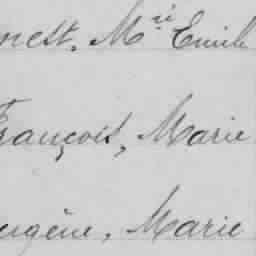 nest, M^rie Emile
François, Marie
eugène, Marie